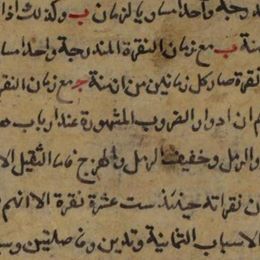 درجة واحدا مساويا لزمان ب وكذلك اذا
ب مع زمان النقرة المندرجة واحدا مسا
نقرة صار كل زمانين من ازمنة ج مع زمان النقر
ان ادوار الضروب المشهورة عند ارباب
والرمل وخفيف الرمل والهزج فاما الثقيل الا
نقراته حينئذ ست عشرة نقرة الا انهم
الاسباب الثمانية وتدين وفاصلتين وسب